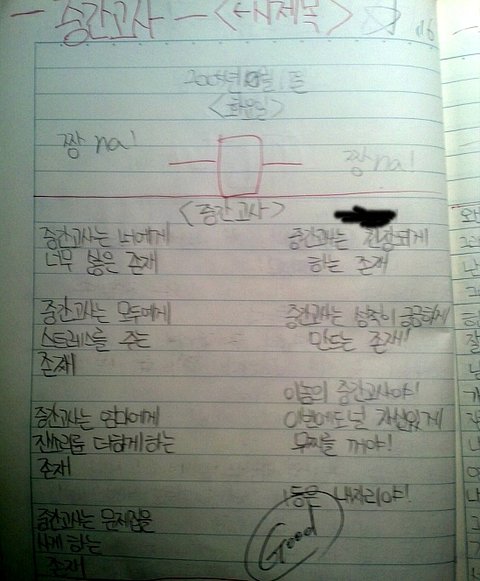 - 중간고사 - <시제목>
2005년 월 1일
<화요일>
짱 na!
짱 na!
<중간고사>
중간고사는 너에게
너무 싫은 존재
중간고사는 모두에게
스트레스를 주는
존재
중간고사는 엄마에게
잔소리를 더하게 하는
존재
중간고사는 문제집을
사게 하는
존재
중간고사는 긴장되게
하는 존재
중간고사는 성적이 궁금하게
만드는 존재!
이놈의 중간고사야!
이번에도 널 자신있게
무찌를 꺼야!
1등은 내자리야!
Good